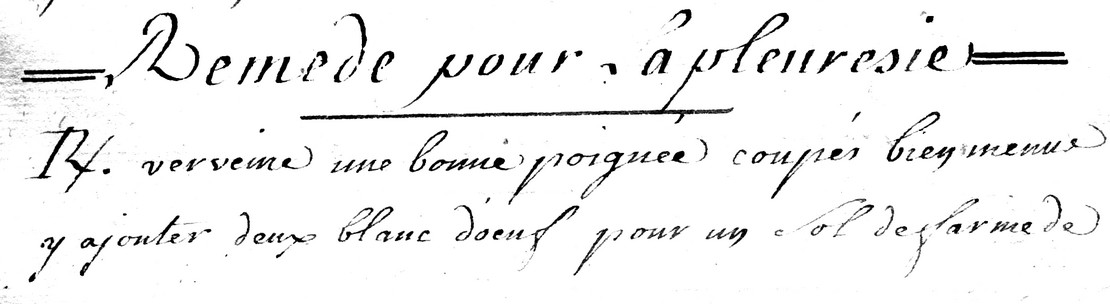 Remede pour la pleuresie
R/. verveine une bonne poignée coupés bien menue
y ajouter deux blanc d'oeuf pour un sol de farine de